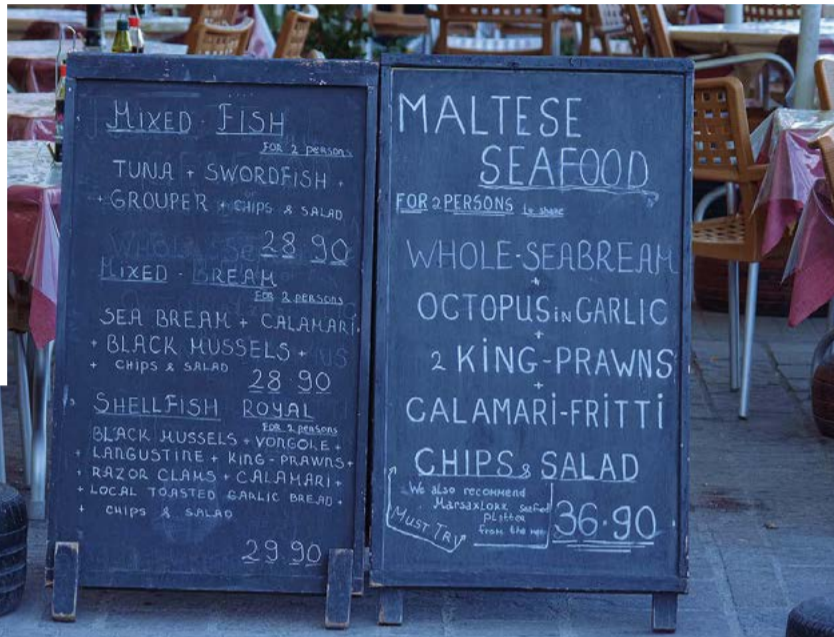 MIXED FISH
FOR 2 PERSONS
TUNA + SWORDFISH +
GROUPER + CHIPS & SALAD
28.90
MIXED-BREAM
FOR 2 PERSONS
SEA BREAM + CALAMARI
+ BLACK MUSSELS +
+ CHIPS & SALAD
28.90
SHELLFISH ROYAL
FOR 2 PERSONS
BLACK MUSSELS + VONGOLE +
+ LANGUSTINE + KING-PRAWNS +
+ RAZOR CLAMS + CALAMARI +
+ LOCAL TOASTED GARLIC BREAD +
+ CHIPS & SALAD
29.90
MALTESE
SEAFOOD
FOR 2 PERSONS to share
WHOLE-SEABREAM
+
OCTOPUS iN GARLIC
+
2 KiNG-PRAWNS
+
CALAMARi-FRiTTi
CHIPS & SALAD
We also recommend
Marsaxlokk
from the
MUST TRY
36.90